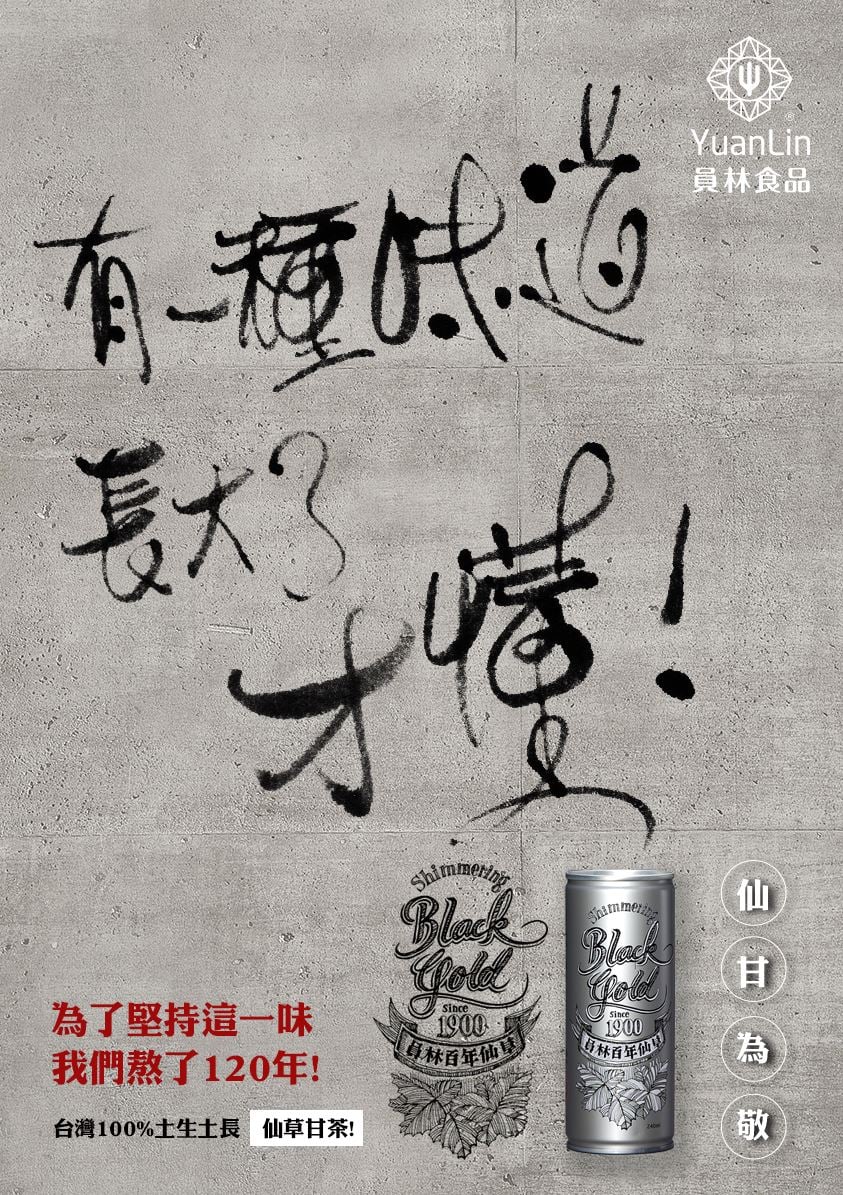 YuanLin
員林食品
有一種味道
長大了
才懂!
為了堅持這一味
我們熬了120年!
台灣100%土生土長 仙草甘茶!
Shimmering
Black
Gold
Since
1900
員林百年仙草
Shimmering
Black
Gold
Since
1900
員林百年仙草
240ml
仙
甘
為
敬